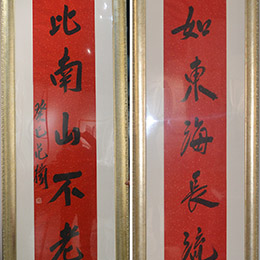 如東海長流
比南山不老